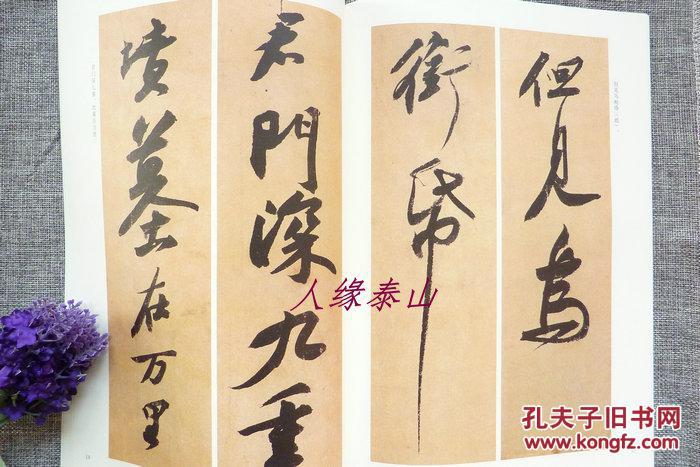 但見烏
銜帋
君門深九重
墳墓在万里
人缘泰山
孔夫子旧书网
www.kongfz.com